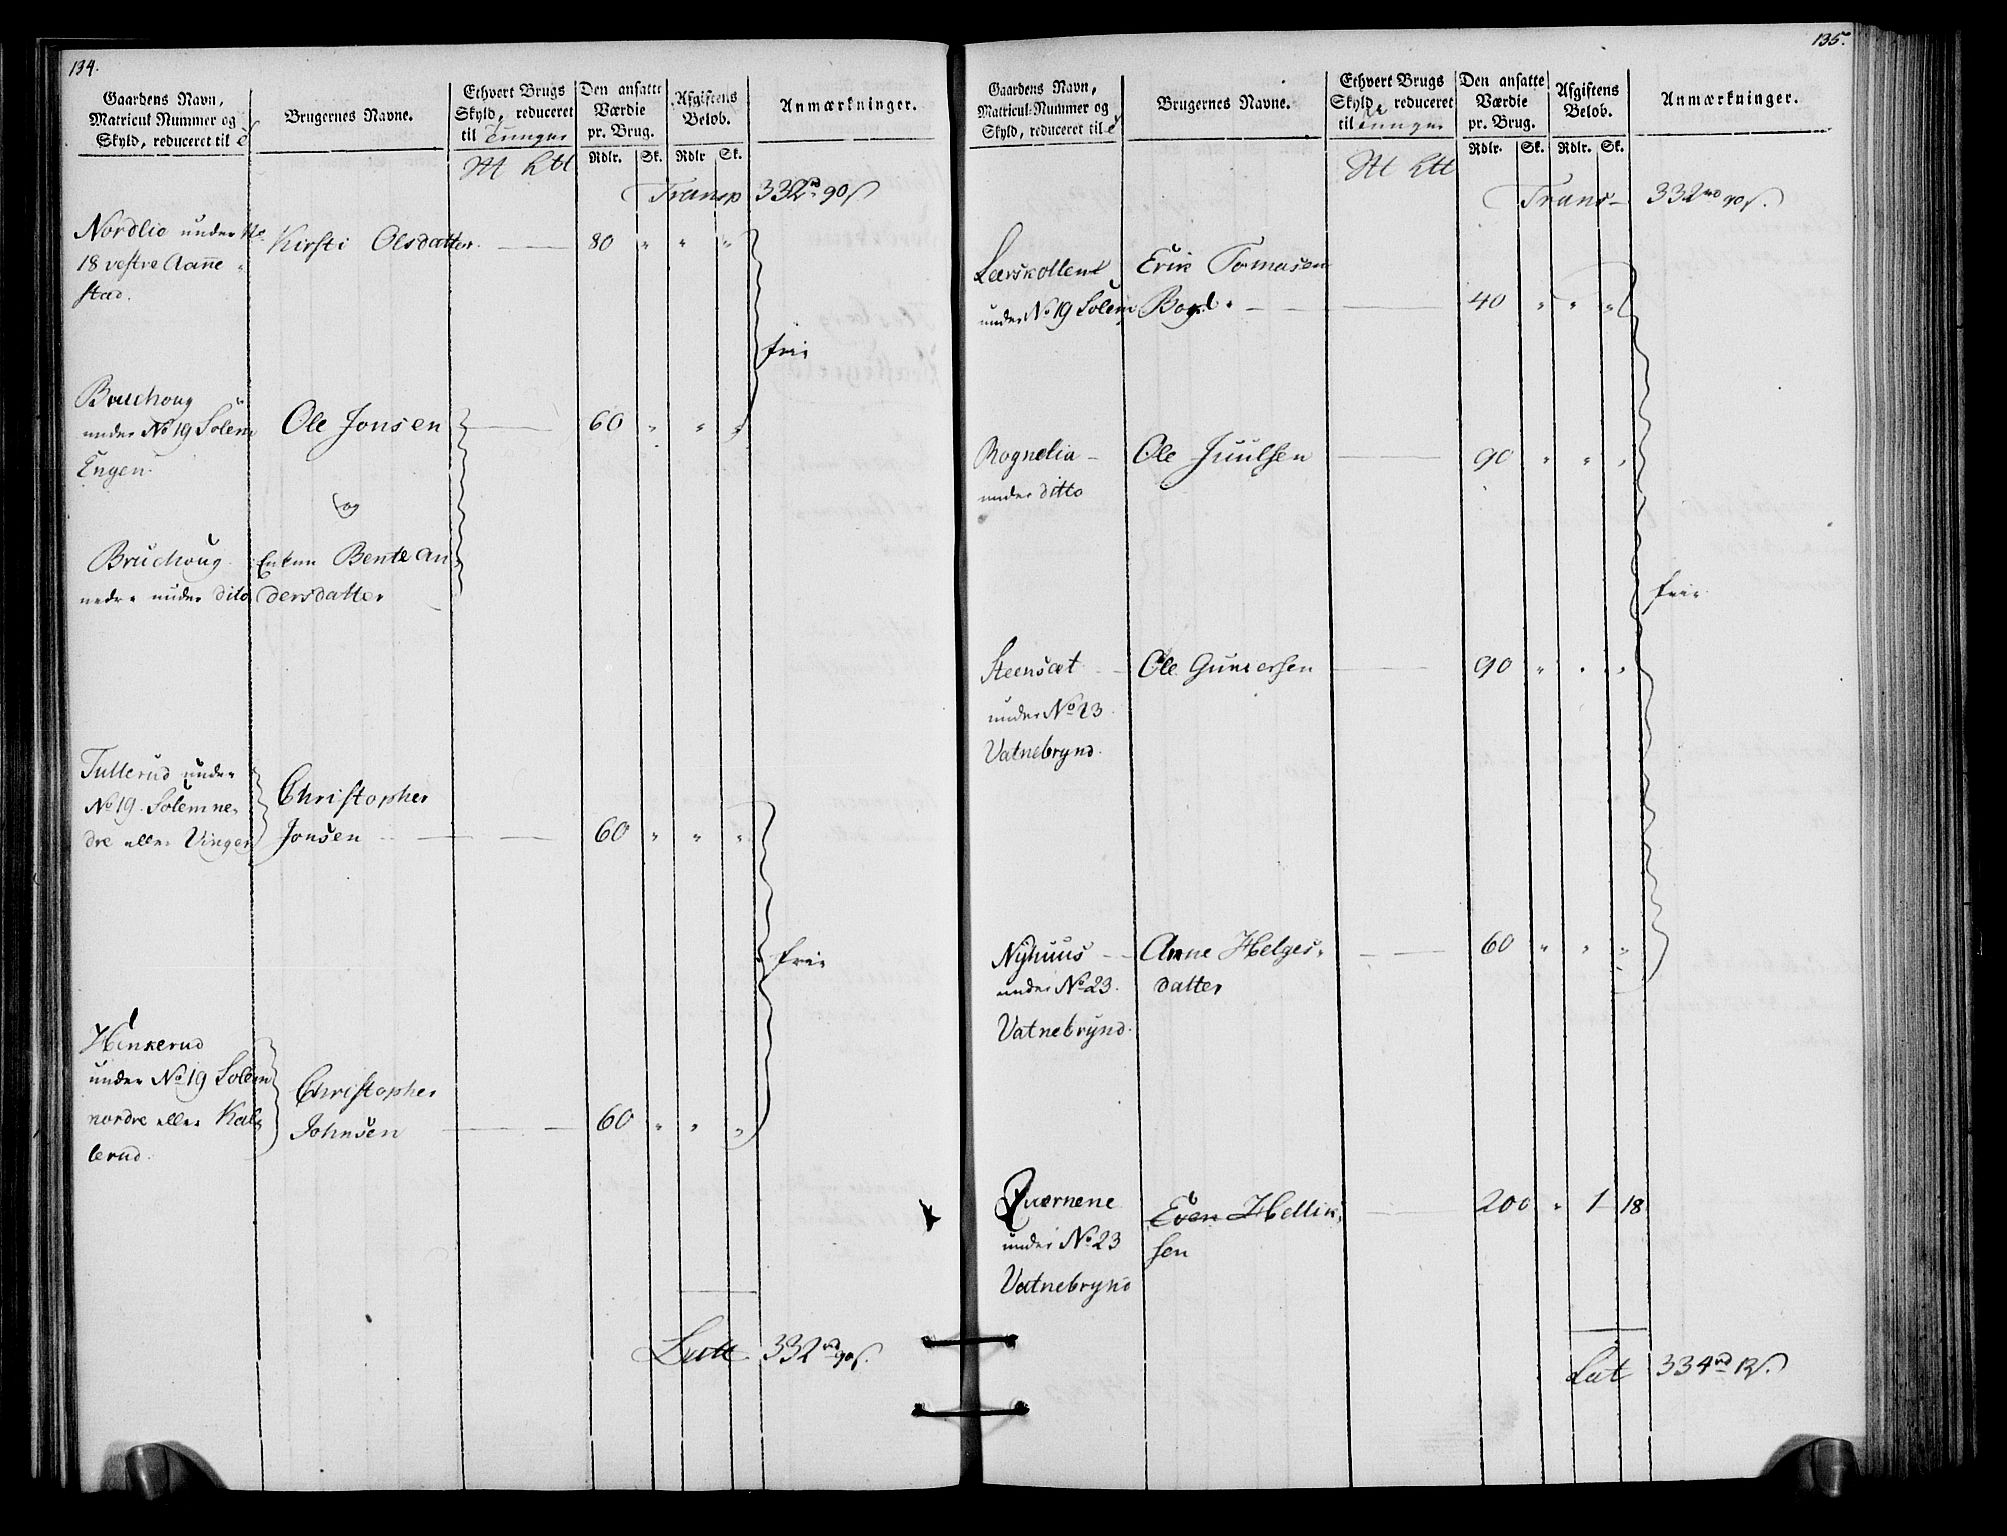 134.
Gaardens Navn,
Matricul Nummer og
Skyld, reduceret til
Brugernes Navne.
Ethvert Brugs
Skyld, reduceret
til Tunger
Den ansatte
Værdie
pr. Brug.
Afgiftens
Beløb.
Anmærkninger.
Rdlr. Sk. Rdlr Sk.
Transp 332 rd 90 s
Nordlie under No
18 vestre Aanne
stad.
Kirsti Olsdatter. 80 " " "
frie
Bruehoug
under No 19 Solem
Engen
Ole Jonsen 60 " " "
og
Bruehoug
nedre under dito
Enken Bente An
dersdatter
Tullerud under
No 19 Solem ne
dre eller Vinger
Christopher
Jonsen 60 " " "
frie
Henkerud
under No 19 Solem
nordre eller Kal
lerud.
Christopher
Johnsen 60 " " "
Latt 332 rd 90 s.
135.
Gaardens Navn,
Matricul-Nummer og
Skyld, reduceret til
Brugernes Navne.
Ethvert Brugs
Skyld, reduceret
til Tunger
Den ansatte
Værdie
pr. Brug.
Afgiftens
Beløb.
Anmærkninger.
Rdlr. Sk. Rdlr. Sk.
Trans- 332 rd 90 s.
Leerskollen
under No 19 Solem
Erik Tomasen
40 " " "
Rognelia
under ditto
Ole Juulsen 90 " " "
frie
Steensæt
under No 23
Vatnebrynd.
Ole Gunersen 90 " " "
Nyhuus
under No 23.
Vatnebrynd.
Anne Helges
datter
60 " " "
Quernene
under No 23
Vatnebrynd
Even Hellik
sen
200 " 1 18
Lat 334 rd 12 s.